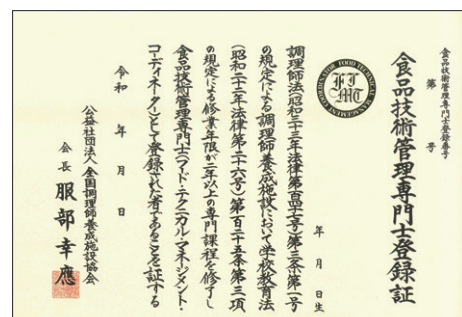 食品技術管理専門士登録番号
第 号
食品技術管理専門士登録証
FOOD TECHNICAL MANAGEMENT COORDINATOR
FTMC
年 月 日生
調理師法(昭和三十三年法律第百四十七号)第三条第一号
の規定による調理師養成施設において学校教育法
(昭和二十二年法律第二十六号)第百二十五条第三項
の規定による修業年限が二年以上の専門課程を修了し
食品技術管理専門士(フード・テクニカル・マネジメント・
コーディネーター)として登録された者であることを証する
令和 年 月 日
公益社団法人 全国調理師養成施設協会
会長 服部幸應